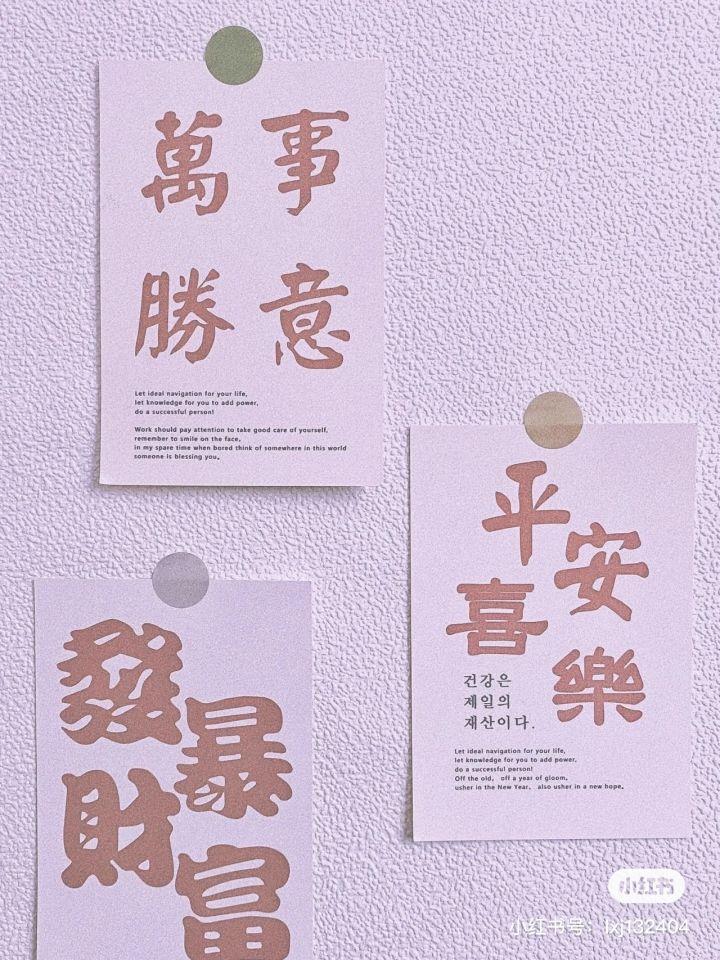 萬事
勝意
Let ideal navigation for your life,
let knowledge for you to add power,
do a successful person!
Work should pay attention to take good care of yourself,
remember to smile on the face,
in my spare time when bored think of somewhere in this world
someone is blessing you。
平安
喜樂
건강은
제일의
재산이다.
Let ideal navigation for your life,
let knowledge for you to add power,
do a successful person!
Off the old, off a year of gloom,
usher in the New Year, also usher in a new hope。
發
財
暴
富
小红书
小红书号: lxj132404